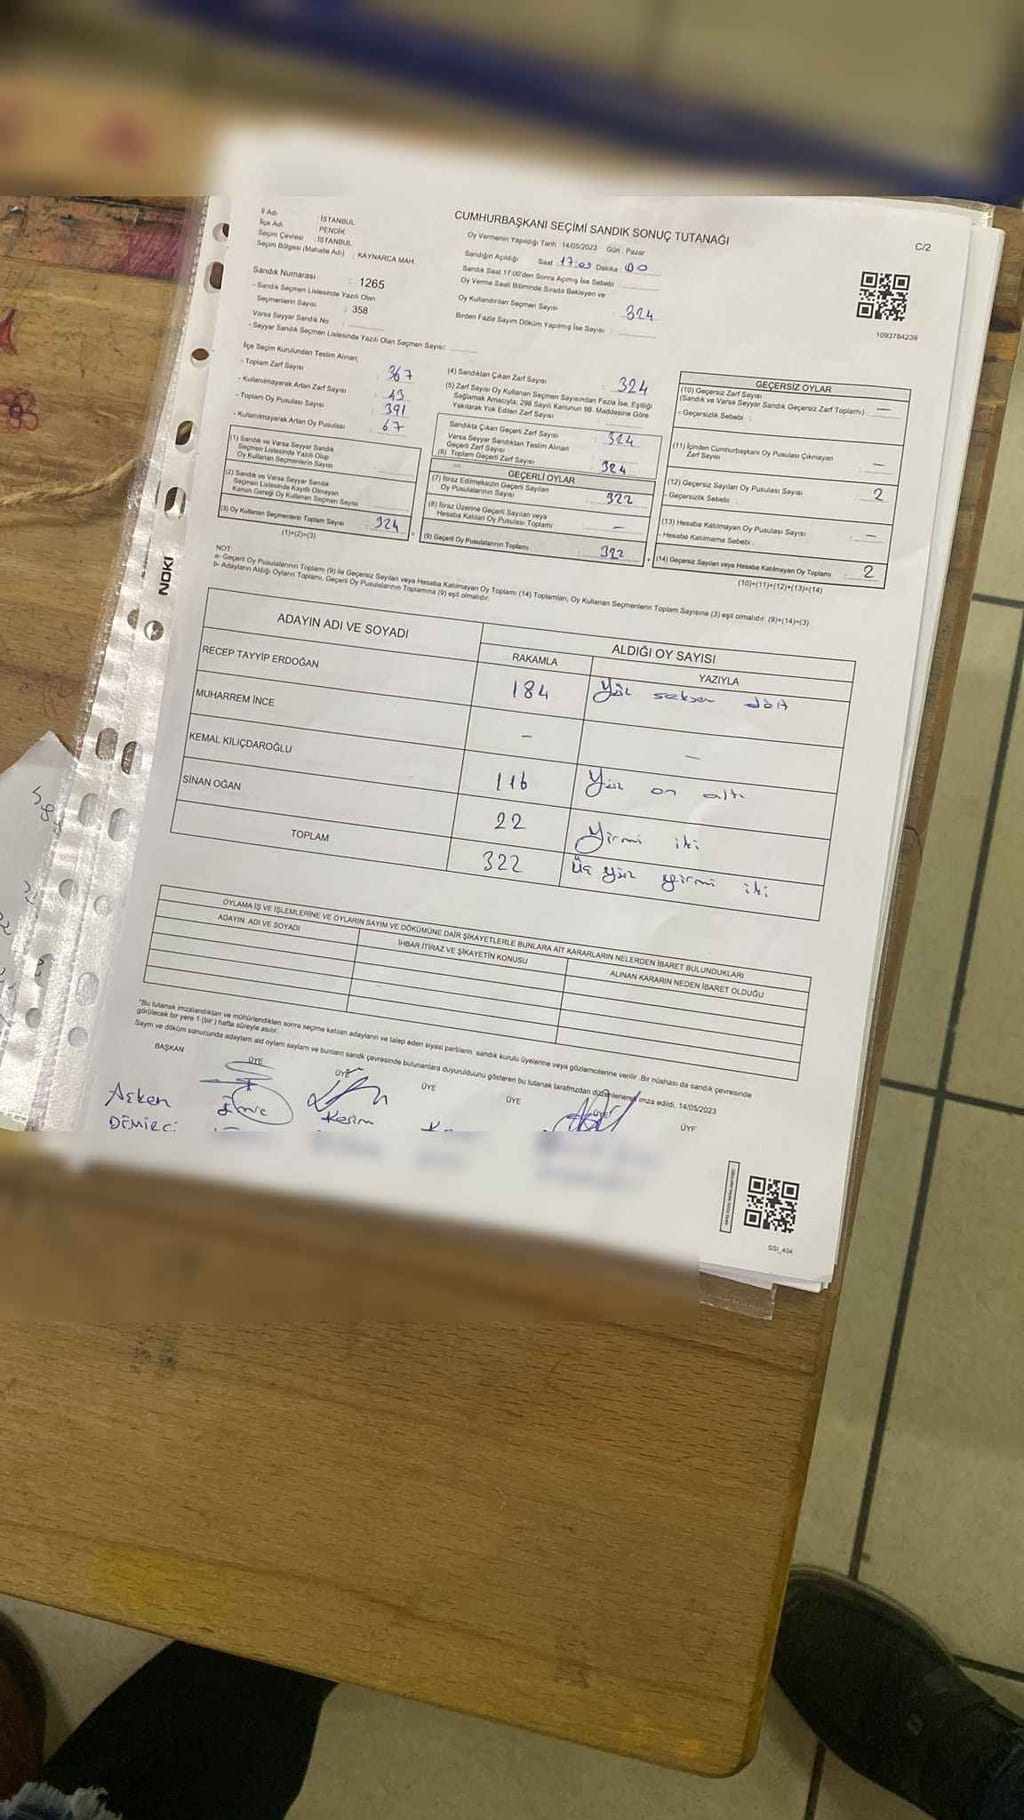 CUMHURBAŞKANI SEÇİMİ SANDIK SONUÇ TUTANAĞI
C/2
İl Adı : İSTANBUL
İlçe Adı : PENDİK
Seçim Çevresi : İSTANBUL
Seçim Bölgesi (Mahalle Adı) : KAYNARCA MAH.
Sandık Numarası : 1265
- Sandık Seçmen Listesinde Yazılı Olan
Seçmenlerin Sayısı : 358
Varsa Seyyar Sandık No :
- Seyyar Sandık Seçmen Listesinde Yazılı Olan Seçmen Sayısı:
Oy Vermenin Yapıldığı Tarih : 14/05/2023 Gün : Pazar
Sandığın Açıldığı Saat 17:03 Dakika 00
Sandık Saat 17:00'den Sonra Açılmış İse Sebebi :
Oy Verme Saati Bitiminde Sırada Bekleyen ve
Oy Kullandırılan Seçmen Sayısı : 324
Birden Fazla Sayım Döküm Yapılmış İse Sayısı :
1093784239
İlçe Seçim Kurulundan Teslim Alınan;
- Toplam Zarf Sayısı : 367
- Kullanılmayarak Artan Zarf Sayısı : 43
- Toplam Oy Pusulası Sayısı : 391
- Kullanılmayarak Artan Oy Pusulası : 67
(1) Sandık ve Varsa Seyyar Sandık
Seçmen Listesinde Yazılı Olup
Oy Kullanan Seçmenlerin Sayısı
(2) Sandık ve Varsa Seyyar Sandık
Seçmen Listesinde Kayıtlı Olmayan
Kanun Gereği Oy Kullanan Seçmen Sayısı
(3) Oy Kullanan Seçmenlerin Toplam Sayısı : 324
(1)+(2)=(3)
(4) Sandıktan Çıkan Zarf Sayısı : 324
(5) Zarf Sayısı Oy Kullanan Seçmen Sayısından Fazla İse, Eşitliği
Sağlamak Amacıyla; 298 Sayılı Kanunun 98. Maddesine Göre
Yakılarak Yok Edilen Zarf Sayısı
Sandıkta Çıkan Geçerli Zarf Sayısı : 324
Varsa Seyyar Sandıktan Teslim Alınan
Geçerli Zarf Sayısı
(6) Toplam Geçerli Zarf Sayısı : 324
GEÇERLİ OYLAR
(7) İtiraz Edilmeksizin Geçerli Sayılan
Oy Pusulalarının Sayısı : 322
(8) İtiraz Üzerine Geçerli Sayılan veya
Hesaba Katılan Oy Pusulası Toplamı : –
(9) Geçerli Oy Pusulalarının Toplamı : 322
GEÇERSİZ OYLAR
(10) Geçersiz Zarf Sayısı
(Sandık ve Varsa Seyyar Sandık Geçersiz Zarf Toplamı) : –
- Geçersizlik Sebebi :
(11) İçinden Cumhurbaşkanı Oy Pusulası Çıkmayan
Zarf Sayısı : –
(12) Geçersiz Sayılan Oy Pusulası Sayısı : 2
- Geçersizlik Sebebi :
(13) Hesaba Katılmayan Oy Pusulası Sayısı : –
- Hesaba Katılmama Sebebi :
(14) Geçersiz Sayılan veya Hesaba Katılmayan Oy Toplamı : 2
(10)+(11)+(12)+(13)=(14)
NOT:
a- Geçerli Oy Pusulalarının Toplamı (9) ile Geçersiz Sayılan veya Hesaba Katılmayan Oy Toplamı (14) Toplamları, Oy Kullanan Seçmenlerin Toplam Sayısına (3) eşit olmalıdır. (9)+(14)=(3)
b- Adayların Aldığı Oyların Toplamı, Geçerli Oy Pusulalarının Toplamına (9) eşit olmalıdır.
NOKI
ADAYIN ADI VE SOYADI
ALDIĞI OY SAYISI
RAKAMLA YAZIYLA
RECEP TAYYİP ERDOĞAN 184 Yüz seksen dört
MUHARREM İNCE – –
KEMAL KILIÇDAROĞLU 116 Yüz on altı
SİNAN OĞAN 22 Yirmi iki
TOPLAM 322 Üç yüz yirmi iki
OYLAMA İŞ VE İŞLEMLERİNE VE OYLARIN SAYIM VE DÖKÜMÜNE DAİR ŞİKAYETLERLE BUNLARA AİT KARARLARIN NELERDEN İBARET BULUNDUKLARI
ADAYIN ADI VE SOYADI
İHBAR İTİRAZ VE ŞİKAYETİN KONUSU
ALINAN KARARIN NEDEN İBARET OLDUĞU
*Bu tutanak imzalandıktan ve mühürlendikten sonra seçime katılan adayların ve talep eden siyasi partilerin sandık kurulu üyelerine veya gözlemcilerine verilir. Bir nüshası da sandık çevresinde
görülecek bir yere 1 (bir) hafta süreyle asılır.
Sayım ve döküm sonucunda adayların aldığı oyların sayıları ve bunların sandık çevresinde bulunanlara duyurulduğunu gösteren bu tutanak tarafımızdan düzenlenerek imza edildi. 14/05/2023
BAŞKAN ÜYE ÜYE ÜYE ÜYE ÜYE ÜYE
Emic Kerim
SSI_404